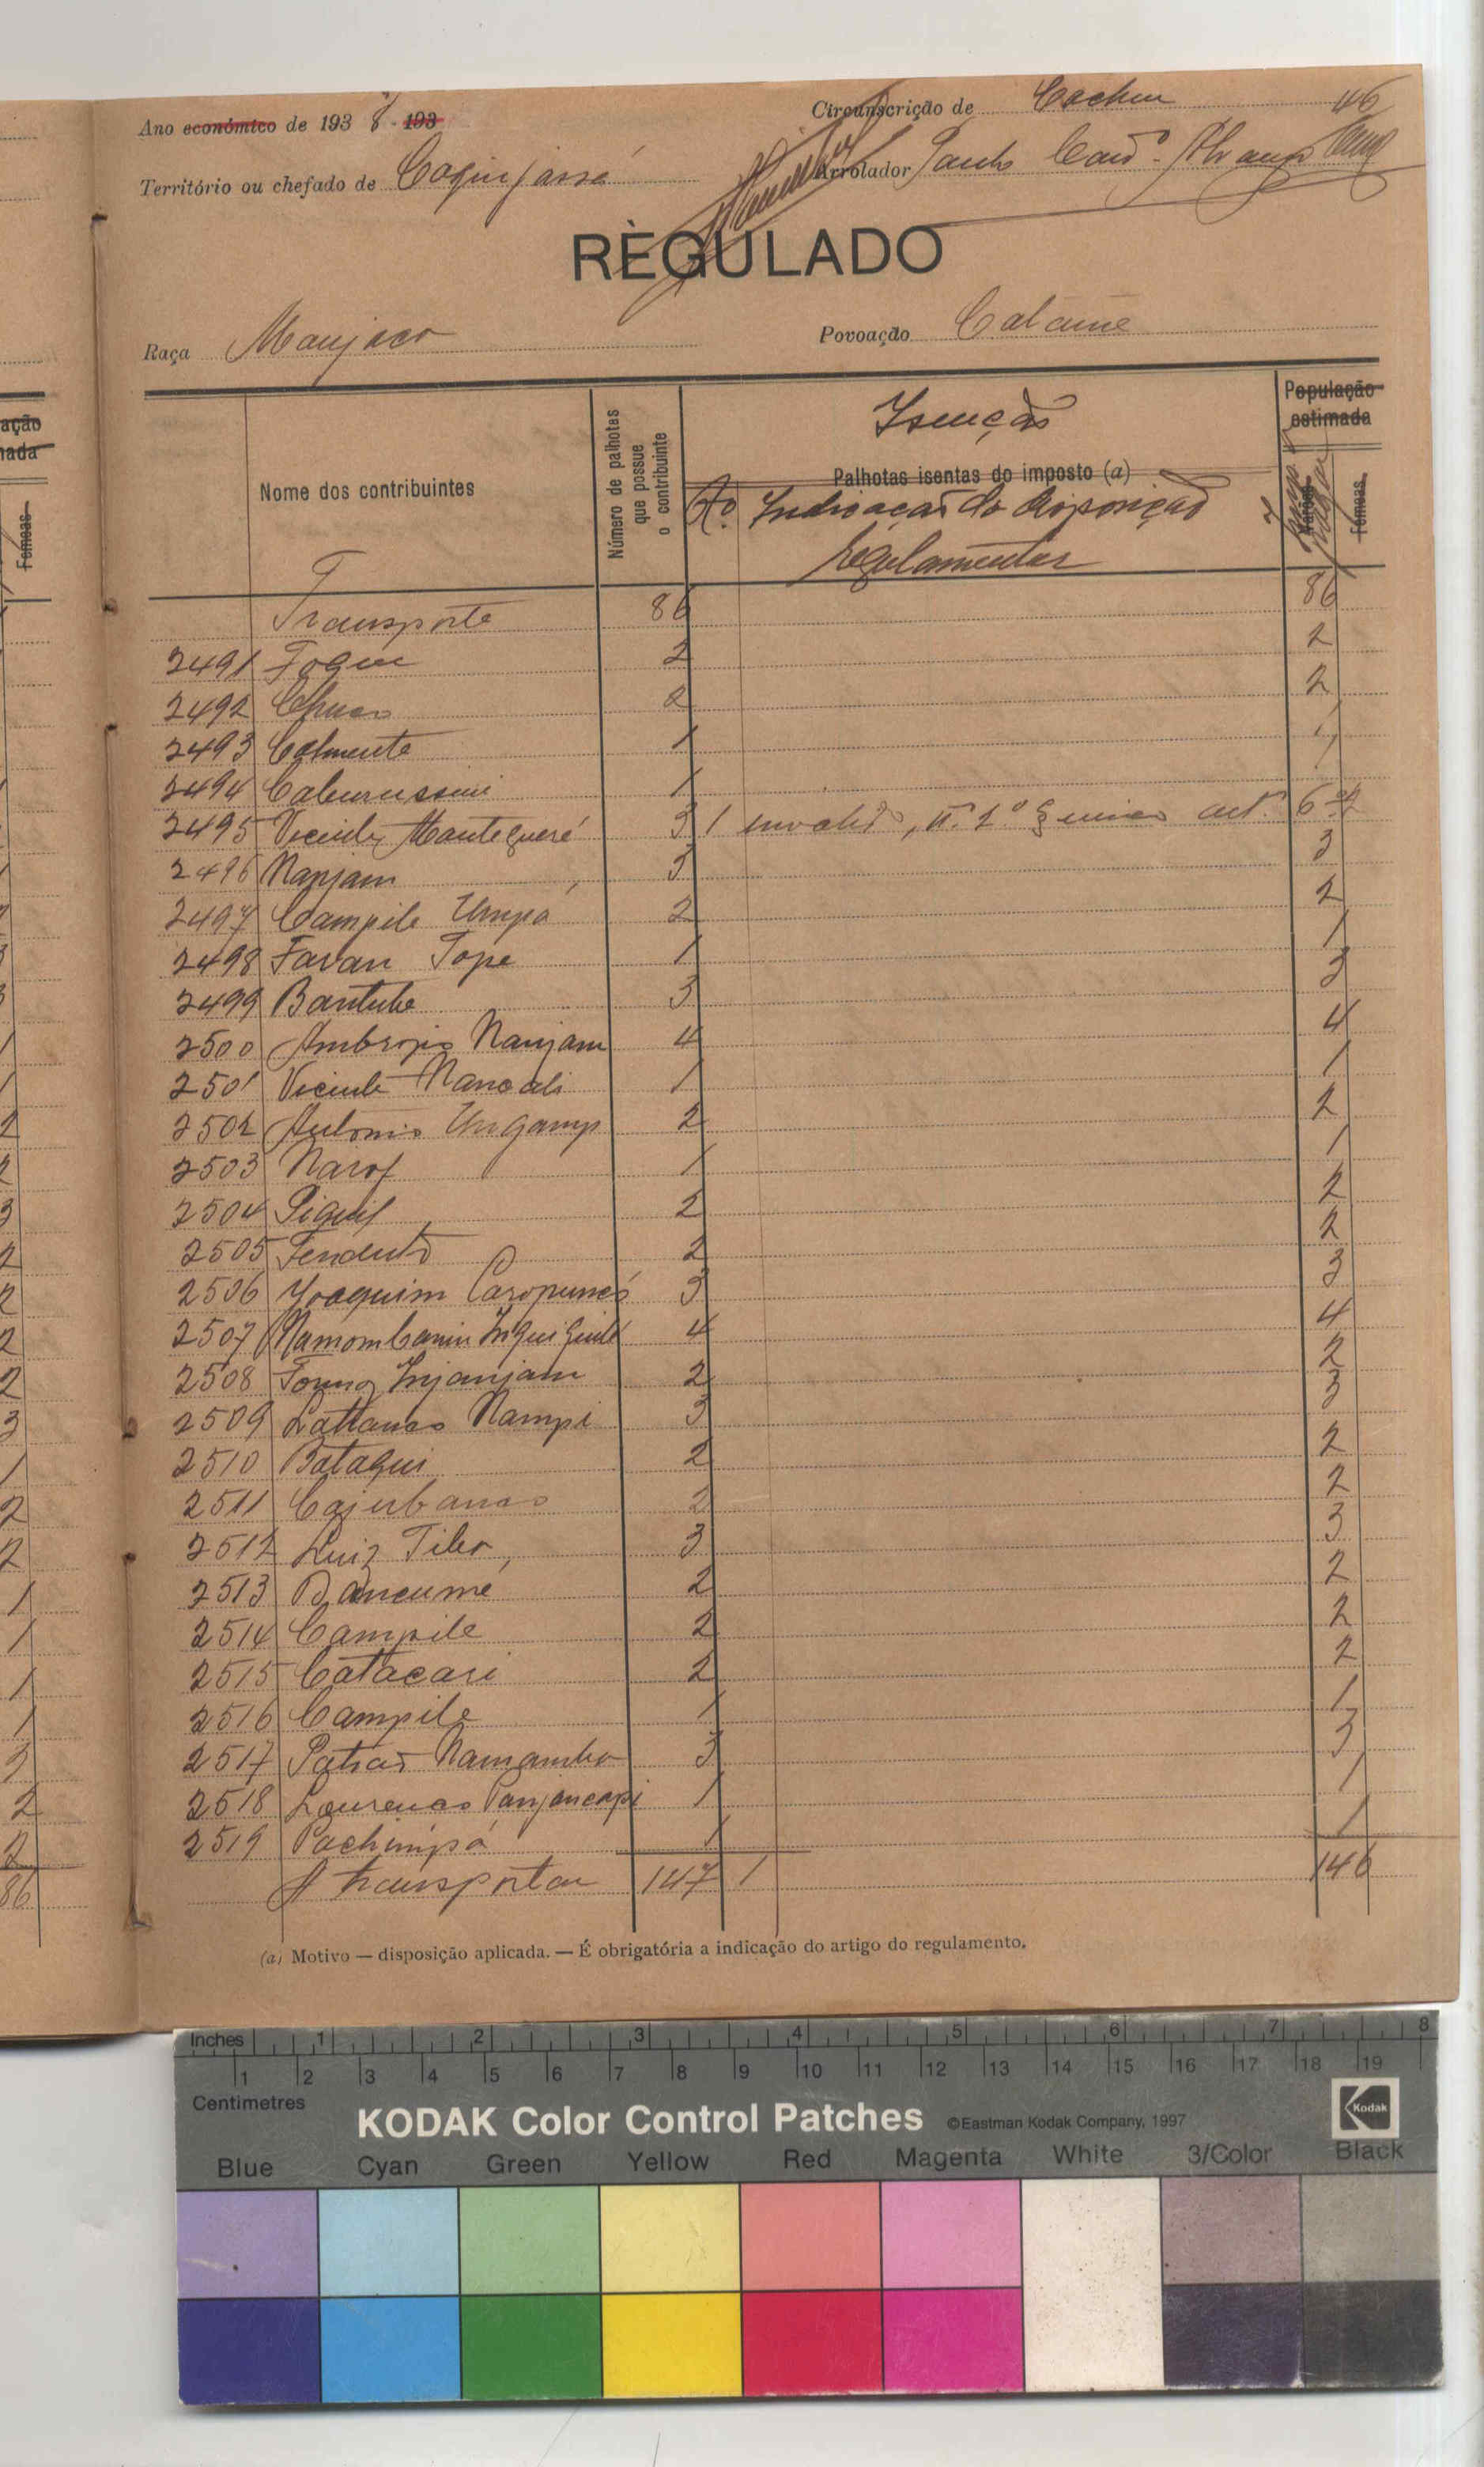 Ano económico de 193 8 - 193
Circunscrição de Cacheu 46
Território ou chefado de Coquijassá
Arrolador Paulo
REGULADO
Raça Manjaco
Povoação Cataime
Nome dos contribuintes
Número de palhotas que possue o contribuinte
Isenção
Palhotas isentas do imposto (a)
No. Indicação da disposição
regulamentar
População estimada
Femeas
Transporte 86 86
2491 2 2
2492 2 2
2493 Calmente 1 1
2494 1
2495 Vicente Mantequeré 3 1 invalido, n.º 1º § unico art. 6º 2
2496 Nanjam 3 3
2497 Campile Umpá 2 2
2498 Favan Tope 1 1
2499 Bantube 3 3
2500 Ambrozio Nanjam 4 4
2501 Vicente Nancali 1 1
2502 Antonio Ungamp 2 2
2503 Narof 1 1
2504 Piquil 2 2
2505 2 2
2506 Joaquim 3 3
2507 4 4
2508 Injanjam 2 2
2509 Nampi 3 3
2510 Bataqui 2 2
2511 2 2
2512 Luiz Tiler 3 3
2513 Dancumé 2 2
2514 Campile 2 2
2515 Catacari 2 2
2516 Campile 1 1
2517 Namambo 3 3
2518 Lourenço Panjancapi 1 1
2519 Pachimpá 1 1
A transportar 147 1 146
(a) Motivo — disposição aplicada. — É obrigatória a indicação do artigo do regulamento.
ação
ada
Femeas
86
Inches 1 2 3 4 5 6 7 8
1 2 3 4 5 6 7 8 9 10 11 12 13 14 15 16 17 18 19
Centimetres
KODAK Color Control Patches ©Eastman Kodak Company, 1997 Kodak
Blue Cyan Green Yellow Red Magenta White 3/Color Black